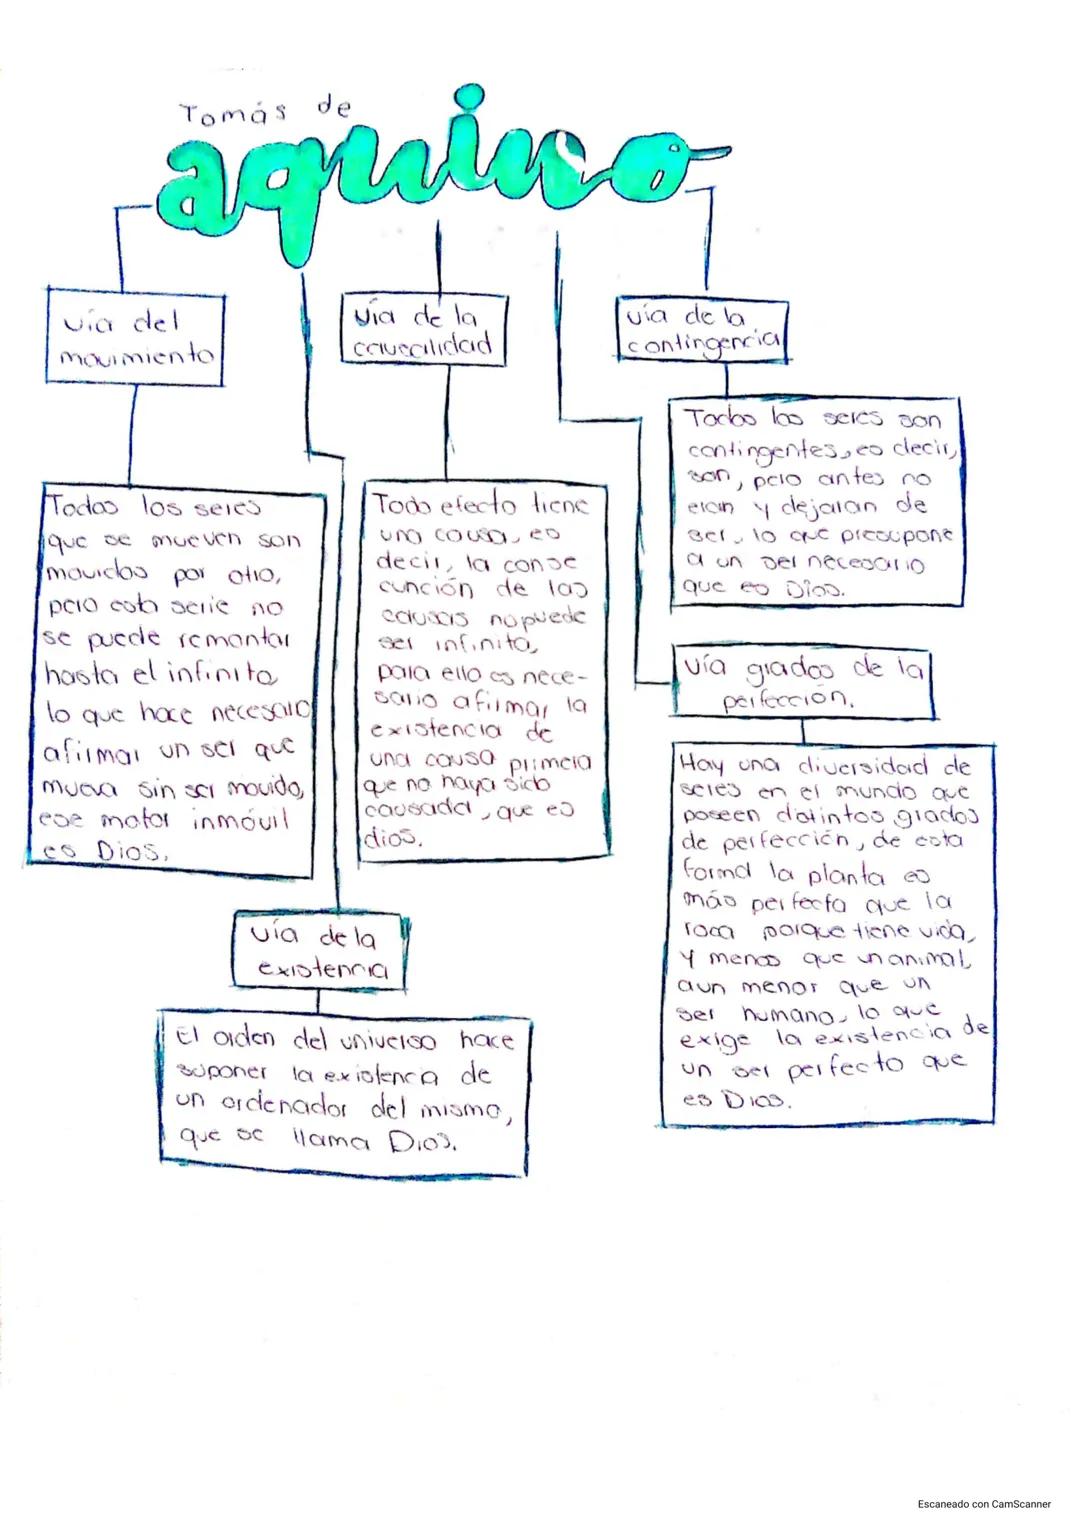 Tomás de
aquino
vía del
movimiento
Todos los seres
que se mueven son
movidos por otro,
pero esta serie no
se puede remontar
hasta el infinito,
lo que hace necesario
afirmar un ser que
mueva sin ser movido,
ese motor inmóvil
es Dios.
vía de la
causalidad
Todo efecto tiene
una causa, es
decir, la conse
cunción de las
causas no puede
ser infinita,
para ello es nece-
sario afirmar la
existencia de
una causa primera
que no haya sido
causada, que es
dios.
vía de la
contingencia
Todos los seres son
contingentes, es decir,
son, pero antes no
eran y dejaran de
ser, lo que presupone
a un ser necesario
que es Dios.
vía grados de la
perfección.
Hay una diversidad de
seres en el mundo que
poseen distintos grados
de perfección, de esta
forma la planta es
más perfecta que la
roca porque tiene vida,
y menos que un animal,
aun menor que un
ser humano, lo que
exige la existencia de
un ser perfecto que
es Dios.
vía de la
existencia
El orden del universo hace
suponer la existencia de
un ordenador del mismo,
que se llama Dios.
Escaneado con CamScanner